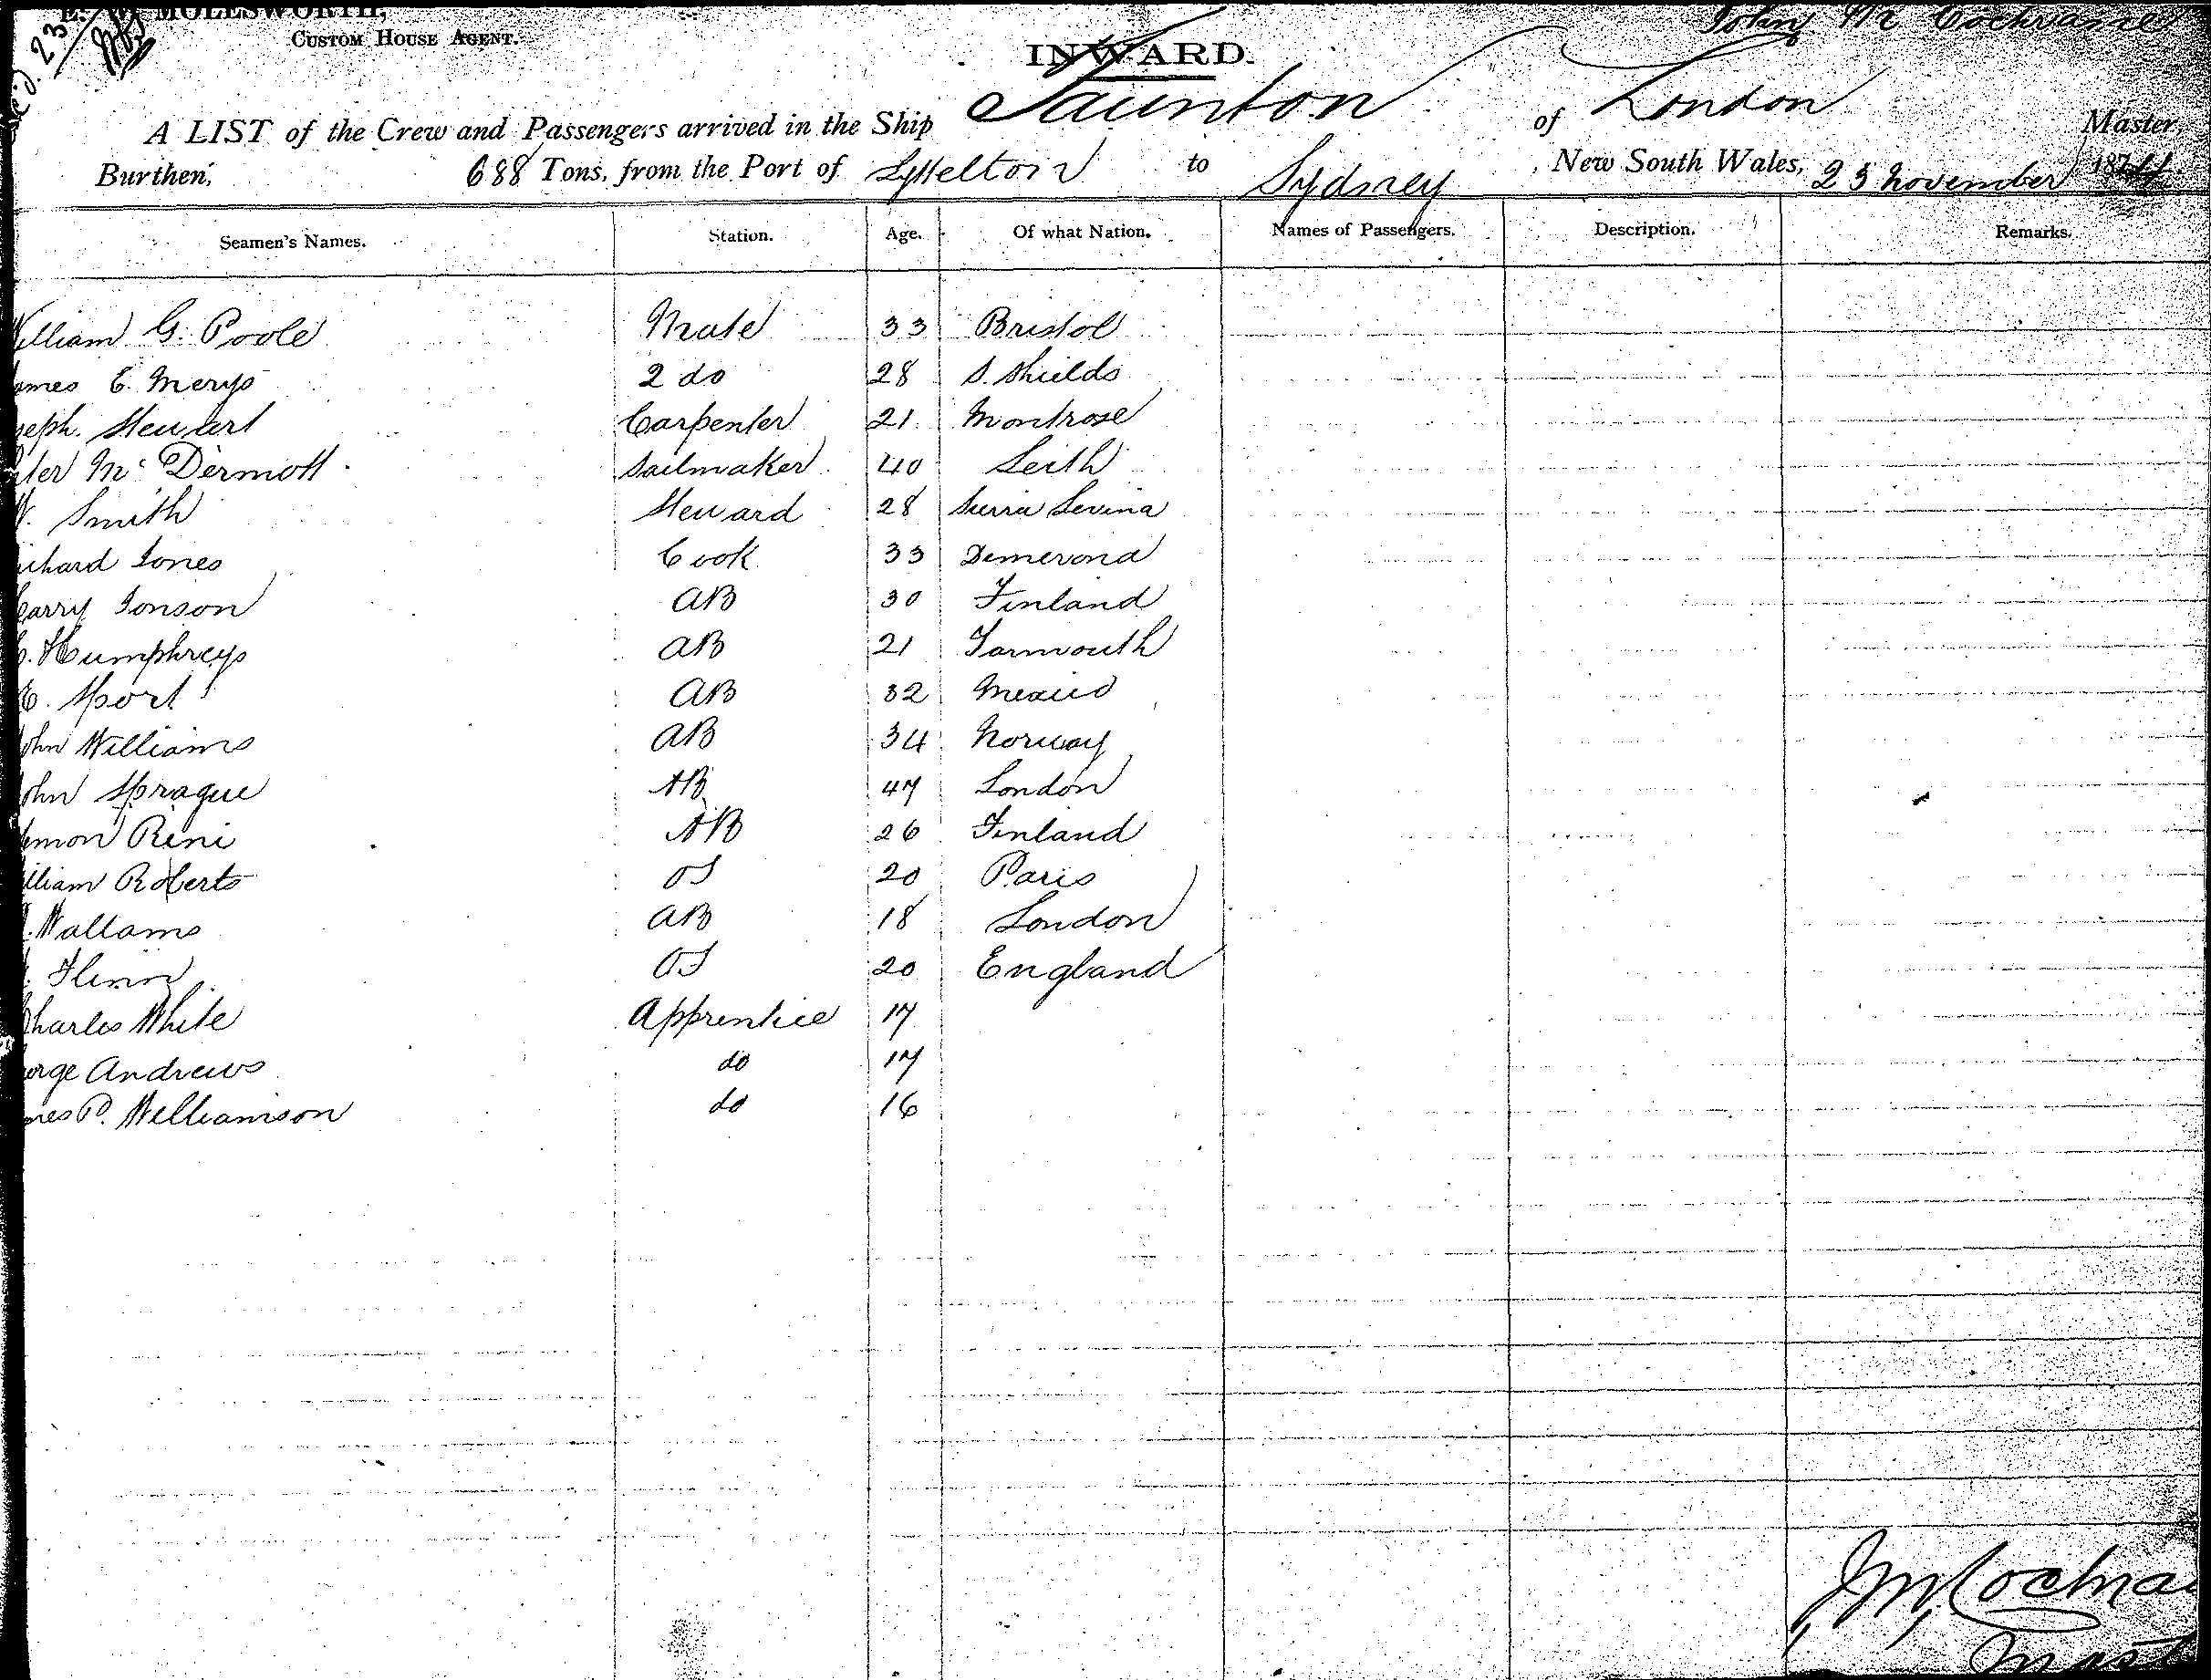 MOLESWORTH,
CUSTOM HOUSE AGENT.
INWARD.
John M Cochrane
A LIST of the Crew and Passengers arrived in the Ship Taunton of London Master,
Burthen, 688 Tons, from the Port of Lyttelton to Sydney, New South Wales, 23 November 187
Seamen's Names. Station. Age. Of what Nation. Names of Passengers. Description. Remarks.
William G. Poole Mate 33 Bristol
ames E. Merys 2 do 28 S. Shields
seph. Stewart Carpenter 21 Montrose
eter Mc Dermott Sailmaker 40 Leith
W. Smith Steward 28 Sierra
ichard Jones Cook 33 Demerona
Harry Jonson AB 30 Finland
Humphreys AB 21 Yarmouth
E. Sport AB 32 Mexico
ohn Williams AB 34 Norway
ohn Sprague AB 47 London
emon Reni AB 26 Finland
illiam Roberts OS 20 Paris
Wallams AB 18 London
Flinn OS 20 England
Charles White Apprentice 17
orge Andrews do 17
mes P. Williamson do 16
J M Cochra
Mast